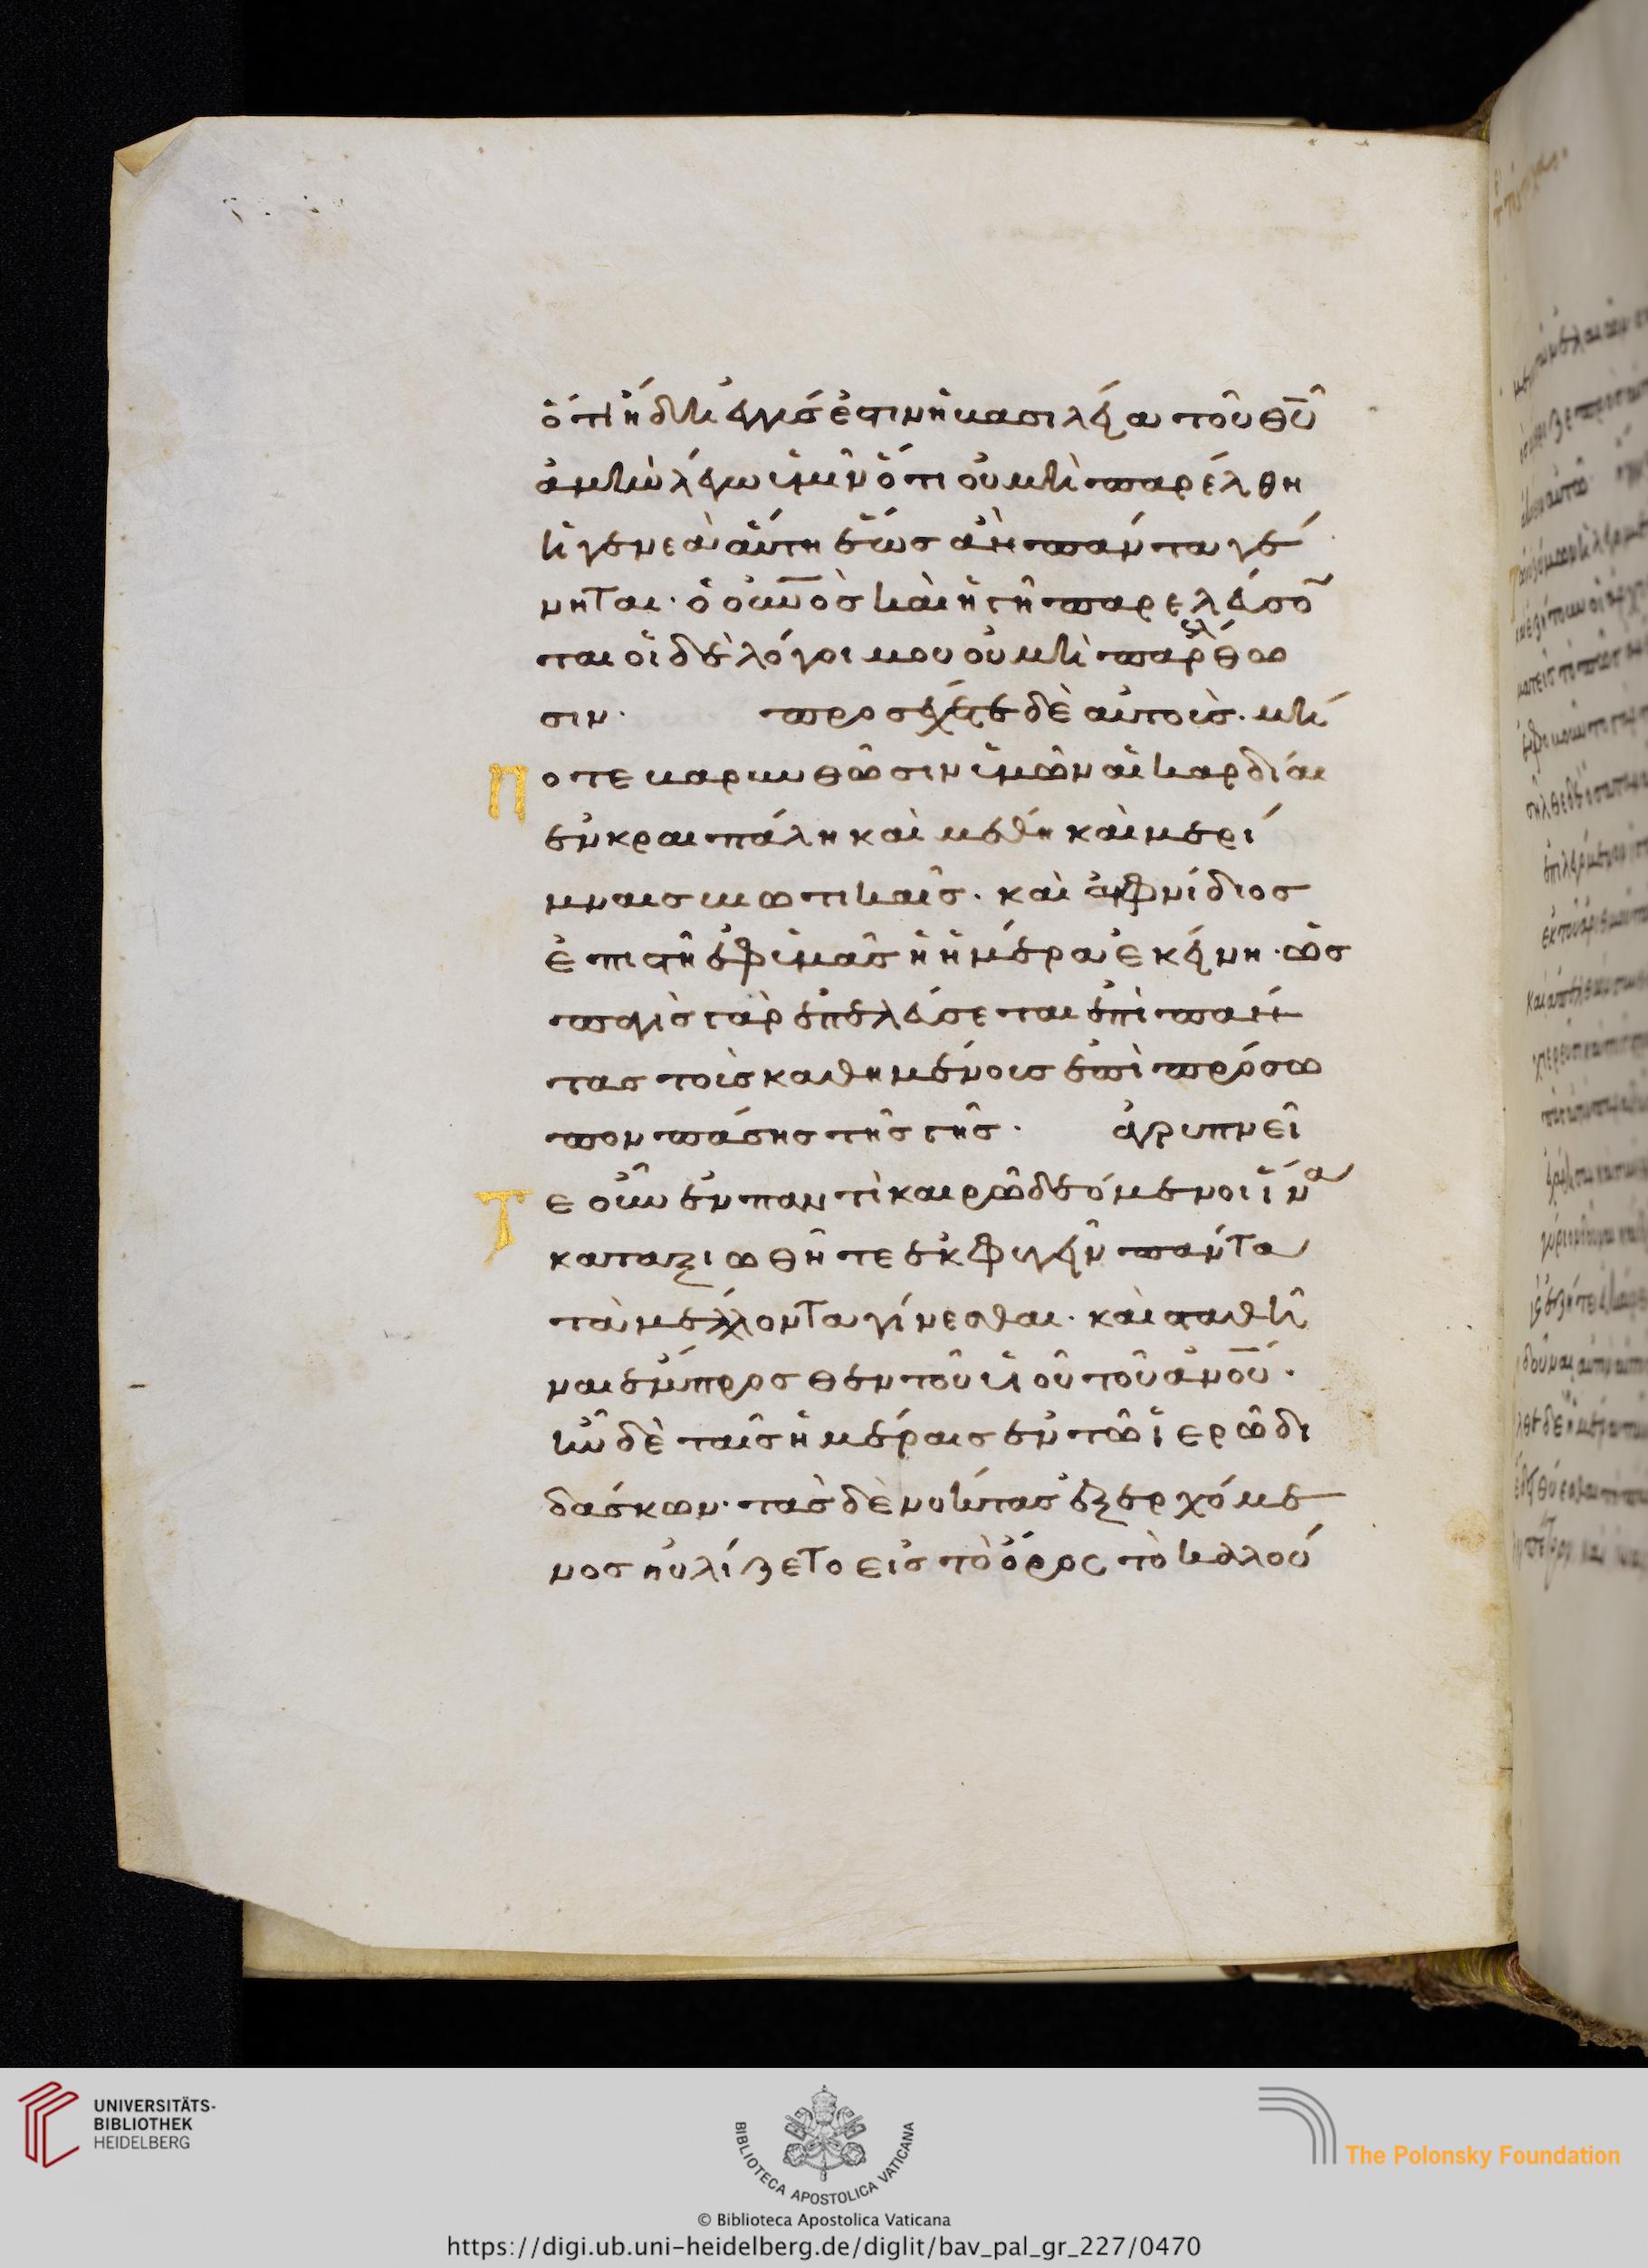 ὅτι ἤδη ἐγγύς ἐστιν ἡ βασιλεία τοῦ θ̅υ̅
ἀμὴν λέγω ὑμῖν ὅτι οὐ μὴ παρέλθη
ἡ γενεὰ αὕτη ἕως ἂν πάντα γέ
νηται· ὁ οὐν̅ο̅ς καὶ ἡ γῆ παρελεύσο
ται οἱ δὲ λόγοι μου οὐ μὴ παρέλθω
σιν· προσέχετε δὲ αὐτοῖς· μή
Ποτε βαρυνθῶσιν ὑμῶν αἱ καρδίαι
ἐν κραιπάλη καὶ μέθη καὶ μερί
μναις βιωτικαῖς· καὶ αἰφνίδιος
ἐπιστῆ ἐφ ὑμᾶς ἡ ἡμέρα ἐκείνη· ὡς
παγὶς γὰρ ἐπελεύσεται ἐπὶ πάν
τας τοὺς καθημένους ἐπὶ πρόσω
πον πάσης τῆς γῆς· ἀγρυπνεῖ
Τε οὖν ἐν παντὶ καιρῶ δεόμενοι ἵνα
καταξιωθῆτε ἐκφυγεῖν πάντα
τὰ μέλλοντα γίνεσθαι· καὶ σταθῆ
ναι ἔμπροσθεν τοῦ υἱοῦ τοῦ ἀν̅ο̅υ̅·
ἦν δὲ ταῖς ἡμέραις ἐν τῶ ἱερῶ δι
δάσκων· τὰς δὲ νύκτας ἐξερχόμε
νος ηὐλίζετο εἰς τὸ ὄρος τὸ καλού
UNIVERSITÄTS-
BIBLIOTHEK
HEIDELBERG
BIBLIOTECA APOSTOLICA VATICANA
The Polonsky Foundation
© Biblioteca Apostolica Vaticana
https://digi.ub.uni-heidelberg.de/diglit/bav_pal_gr_227/0470